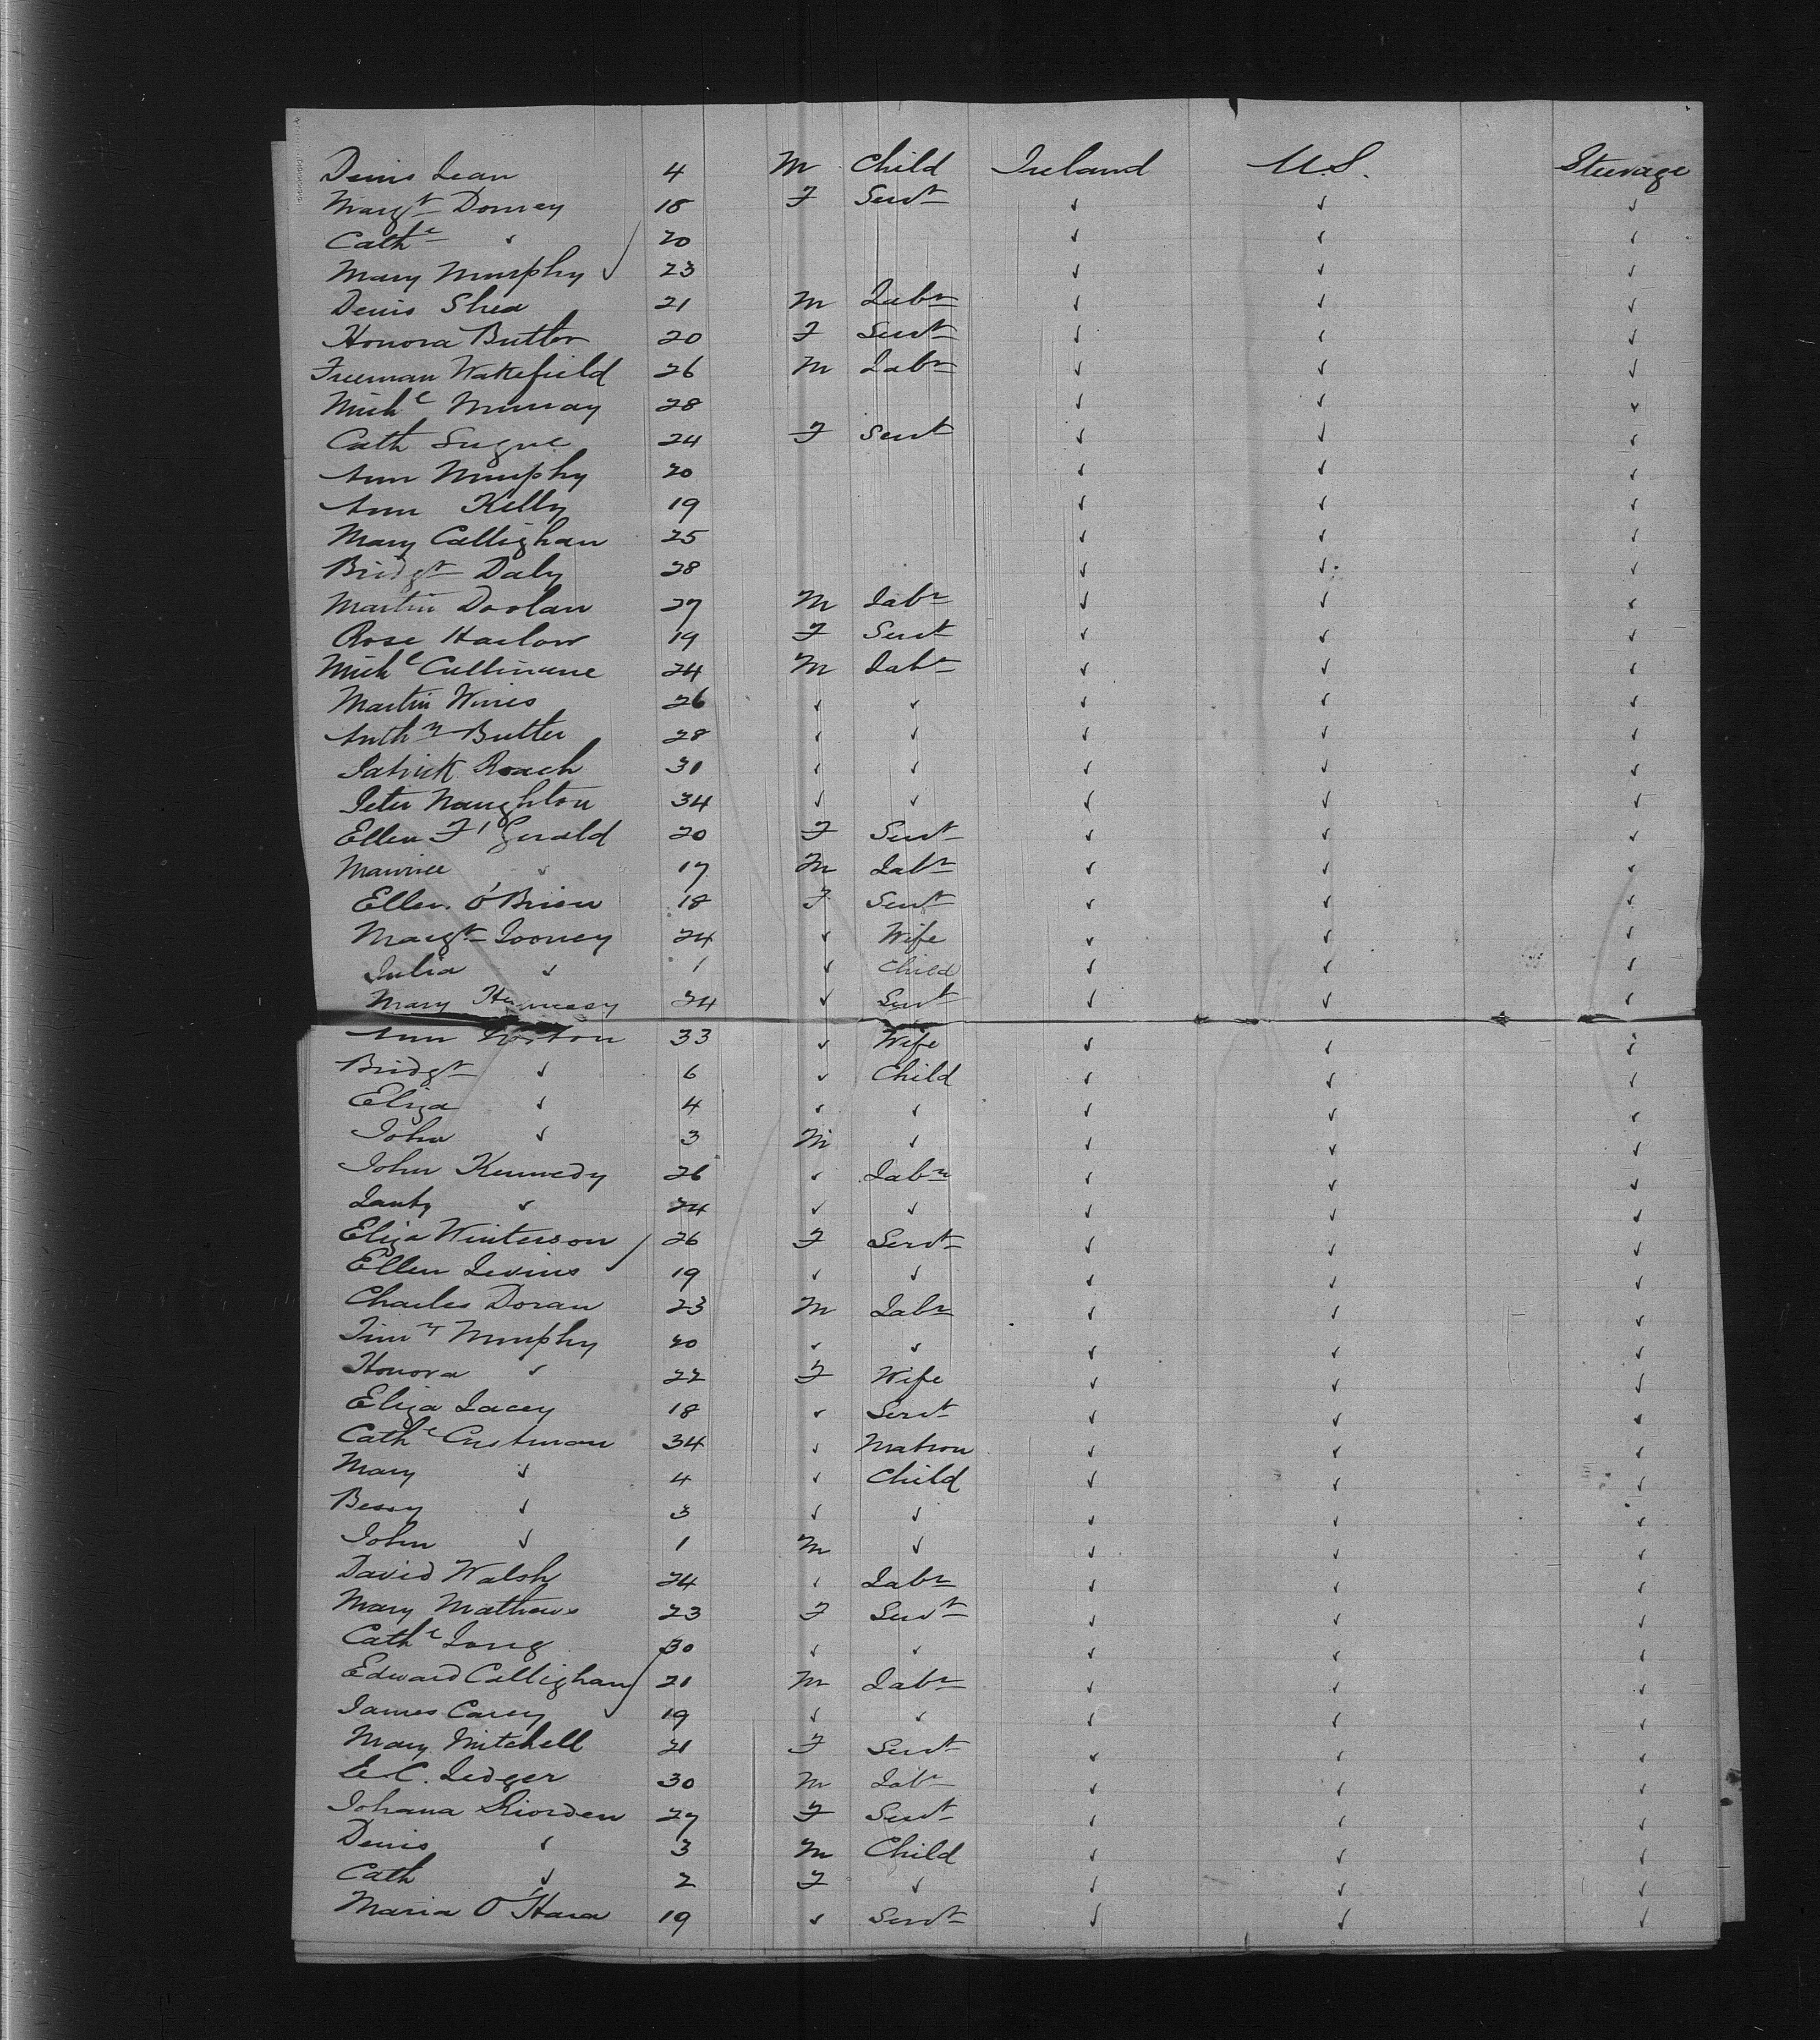 Denis Lean 4 M Child Ireland U.S. Steerage
Margt Dorney 18 F Servt ✓ ✓ ✓
Cathe ✓ 20 ✓ ✓ ✓
Mary Murphy 23 ✓ ✓ ✓
Denis Shea 21 M Labr ✓ ✓ ✓
Honora Butler 20 F Servt ✓ ✓ ✓
Freeman Wakefield 26 M Labr ✓ ✓ ✓
Michl Murray 28 ✓ ✓ ✓
Cath Sugrue 24 F Servt ✓ ✓ ✓
Ann Murphy 20 ✓ ✓ ✓
Ann Kelly 19 ✓ ✓ ✓
Mary Callighan 25 ✓ ✓ ✓
Bridgt Daly 28 ✓ ✓ ✓
Martin Doolan 27 M Labr ✓ ✓ ✓
Rose Harlow 19 F Servt ✓ ✓ ✓
Michl Cullinane 24 M Labr ✓ ✓ ✓
Martin 26 ✓ ✓ ✓ ✓ ✓
Anthy Butler 28 ✓ ✓ ✓ ✓ ✓
Patrick Roach 31 ✓ ✓ ✓ ✓ ✓
Peter Naughton 34 ✓ ✓ ✓ ✓ ✓
Ellen F'Gerald 20 F Servt ✓ ✓ ✓
Maurice ✓ 17 M Labr ✓ ✓ ✓
Ellen O'Brien 18 F Servt ✓ ✓ ✓
Margt Looney 24 ✓ Wife ✓ ✓ ✓
Julia ✓ 1 ✓ Child ✓ ✓ ✓
Mary Hennessy 24 ✓ Servt ✓ ✓ ✓
Ann Norton 33 ✓ Wife ✓ ✓ ✓
Bridgt ✓ 6 ✓ Child ✓ ✓ ✓
Eliza ✓ 4 ✓ ✓ ✓ ✓ ✓
John ✓ 3 M ✓ ✓ ✓ ✓
John Kennedy 26 ✓ Labr ✓ ✓ ✓
Lanty ✓ 24 ✓ ✓ ✓ ✓ ✓
Eliza Winterson 26 F Servt ✓ ✓ ✓
Ellen Levins 19 ✓ ✓ ✓ ✓ ✓
Charles Doran 23 M Labr ✓ ✓ ✓
Timy Murphy 20 ✓ ✓ ✓ ✓ ✓
Honora ✓ 22 F Wife ✓ ✓ ✓
Eliza Lacey 18 ✓ Servt ✓ ✓ ✓
Cathe Custman 34 ✓ Matron ✓ ✓ ✓
Mary ✓ 4 ✓ Child ✓ ✓ ✓
Bessy ✓ 3 ✓ ✓ ✓ ✓ ✓
John ✓ 1 M ✓ ✓ ✓ ✓
David Walsh 24 ✓ Labr ✓ ✓ ✓
Mary Mathews 23 F Servt ✓ ✓ ✓
Cathe Long 30 ✓ ✓ ✓ ✓ ✓
Edward Callighan 21 M Labr ✓ ✓ ✓
James Carey 19 ✓ ✓ ✓ ✓ ✓
Mary Mitchell 21 F Servt ✓ ✓ ✓
E C. Ledger 30 M Labr ✓ ✓ ✓
Johana Riorden 27 F Servt ✓ ✓ ✓
Denis ✓ 3 M Child ✓ ✓ ✓
Cath ✓ 2 F ✓ ✓ ✓ ✓
Maria O'Hara 19 ✓ Servt ✓ ✓ ✓